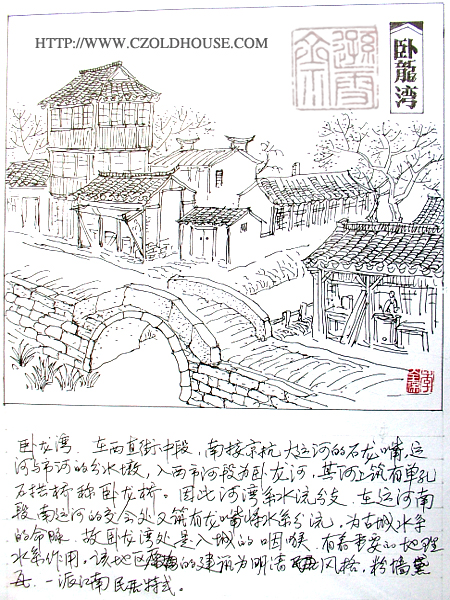 HTTP://WWW.CZOLDHOUSE.COM
卧龍湾
卧龙湾、在西直街中段，南接京杭大运河的石龙嘴，运
河与市河的分水墩，入西市河段为卧龙河，其河上筑有单孔
石拱桥称卧龙桥。因此河湾系水流分支、在运河南
段，南运河的交会处又筑有龙嘴水系分流，为古城水系
的命脉、故卧龙湾处是入城的咽喉、有着重要的地理
水系作用，该地区的建筑为明清风格，粉墙黛
瓦、一派江南民居特式。